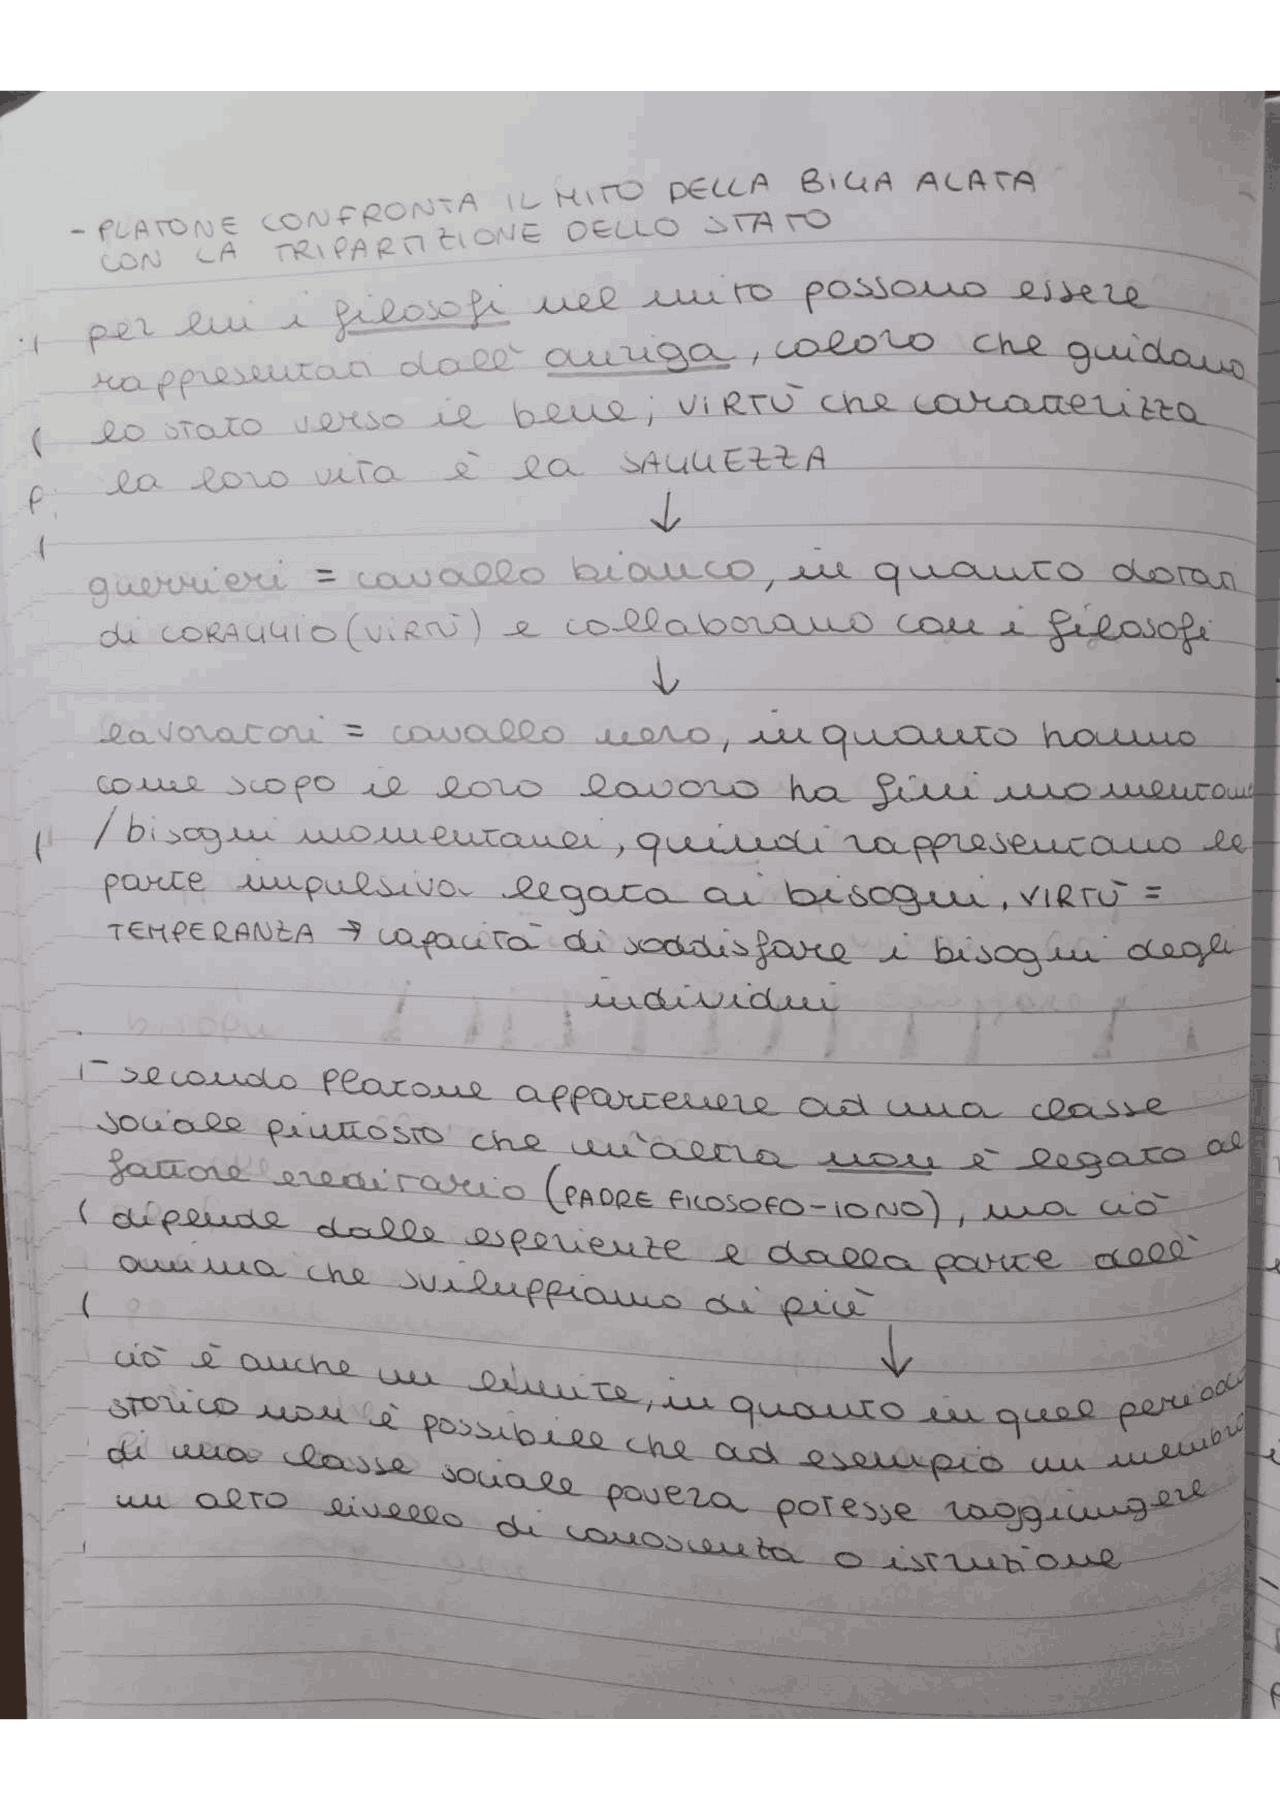 - PLATONE CONFRONTA IL MITO DELLA BIGA ALATA
CON LA TRIPARTIZIONE DELLO STATO
per lui i filosofi nel mito possono essere
rappresentati dall'auriga, coloro che guidano
lo stato verso il bene; VIRTÙ che caratterizza
la loro vita è la SAGGEZZA
↓
guerrieri = cavallo bianco, in quanto dotati
di CORAGGIO (VIRTÙ) e collaborano con i filosofi
↓
lavoratori = cavallo nero, in quanto hanno
come scopo il loro lavoro ha fini momentanei
/ bisogni momentanei, quindi rappresentano la
parte impulsiva legata ai bisogni. VIRTÙ =
TEMPERANZA → capacità di soddisfare i bisogni degli
individui
- secondo Platone appartenere ad una classe
sociale piuttosto che un'altra non è legato al
fattore ereditario (PADRE FILOSOFO-IO NO), ma ciò
dipende dalle esperienze e dalla parte dell'
anima che sviluppiamo di più
↓
ciò è anche un limite, in quanto in quel periodo
storico non è possibile che ad esempio un membro
di una classe sociale povera potesse raggiungere
un alto livello di conoscenza o istruzione